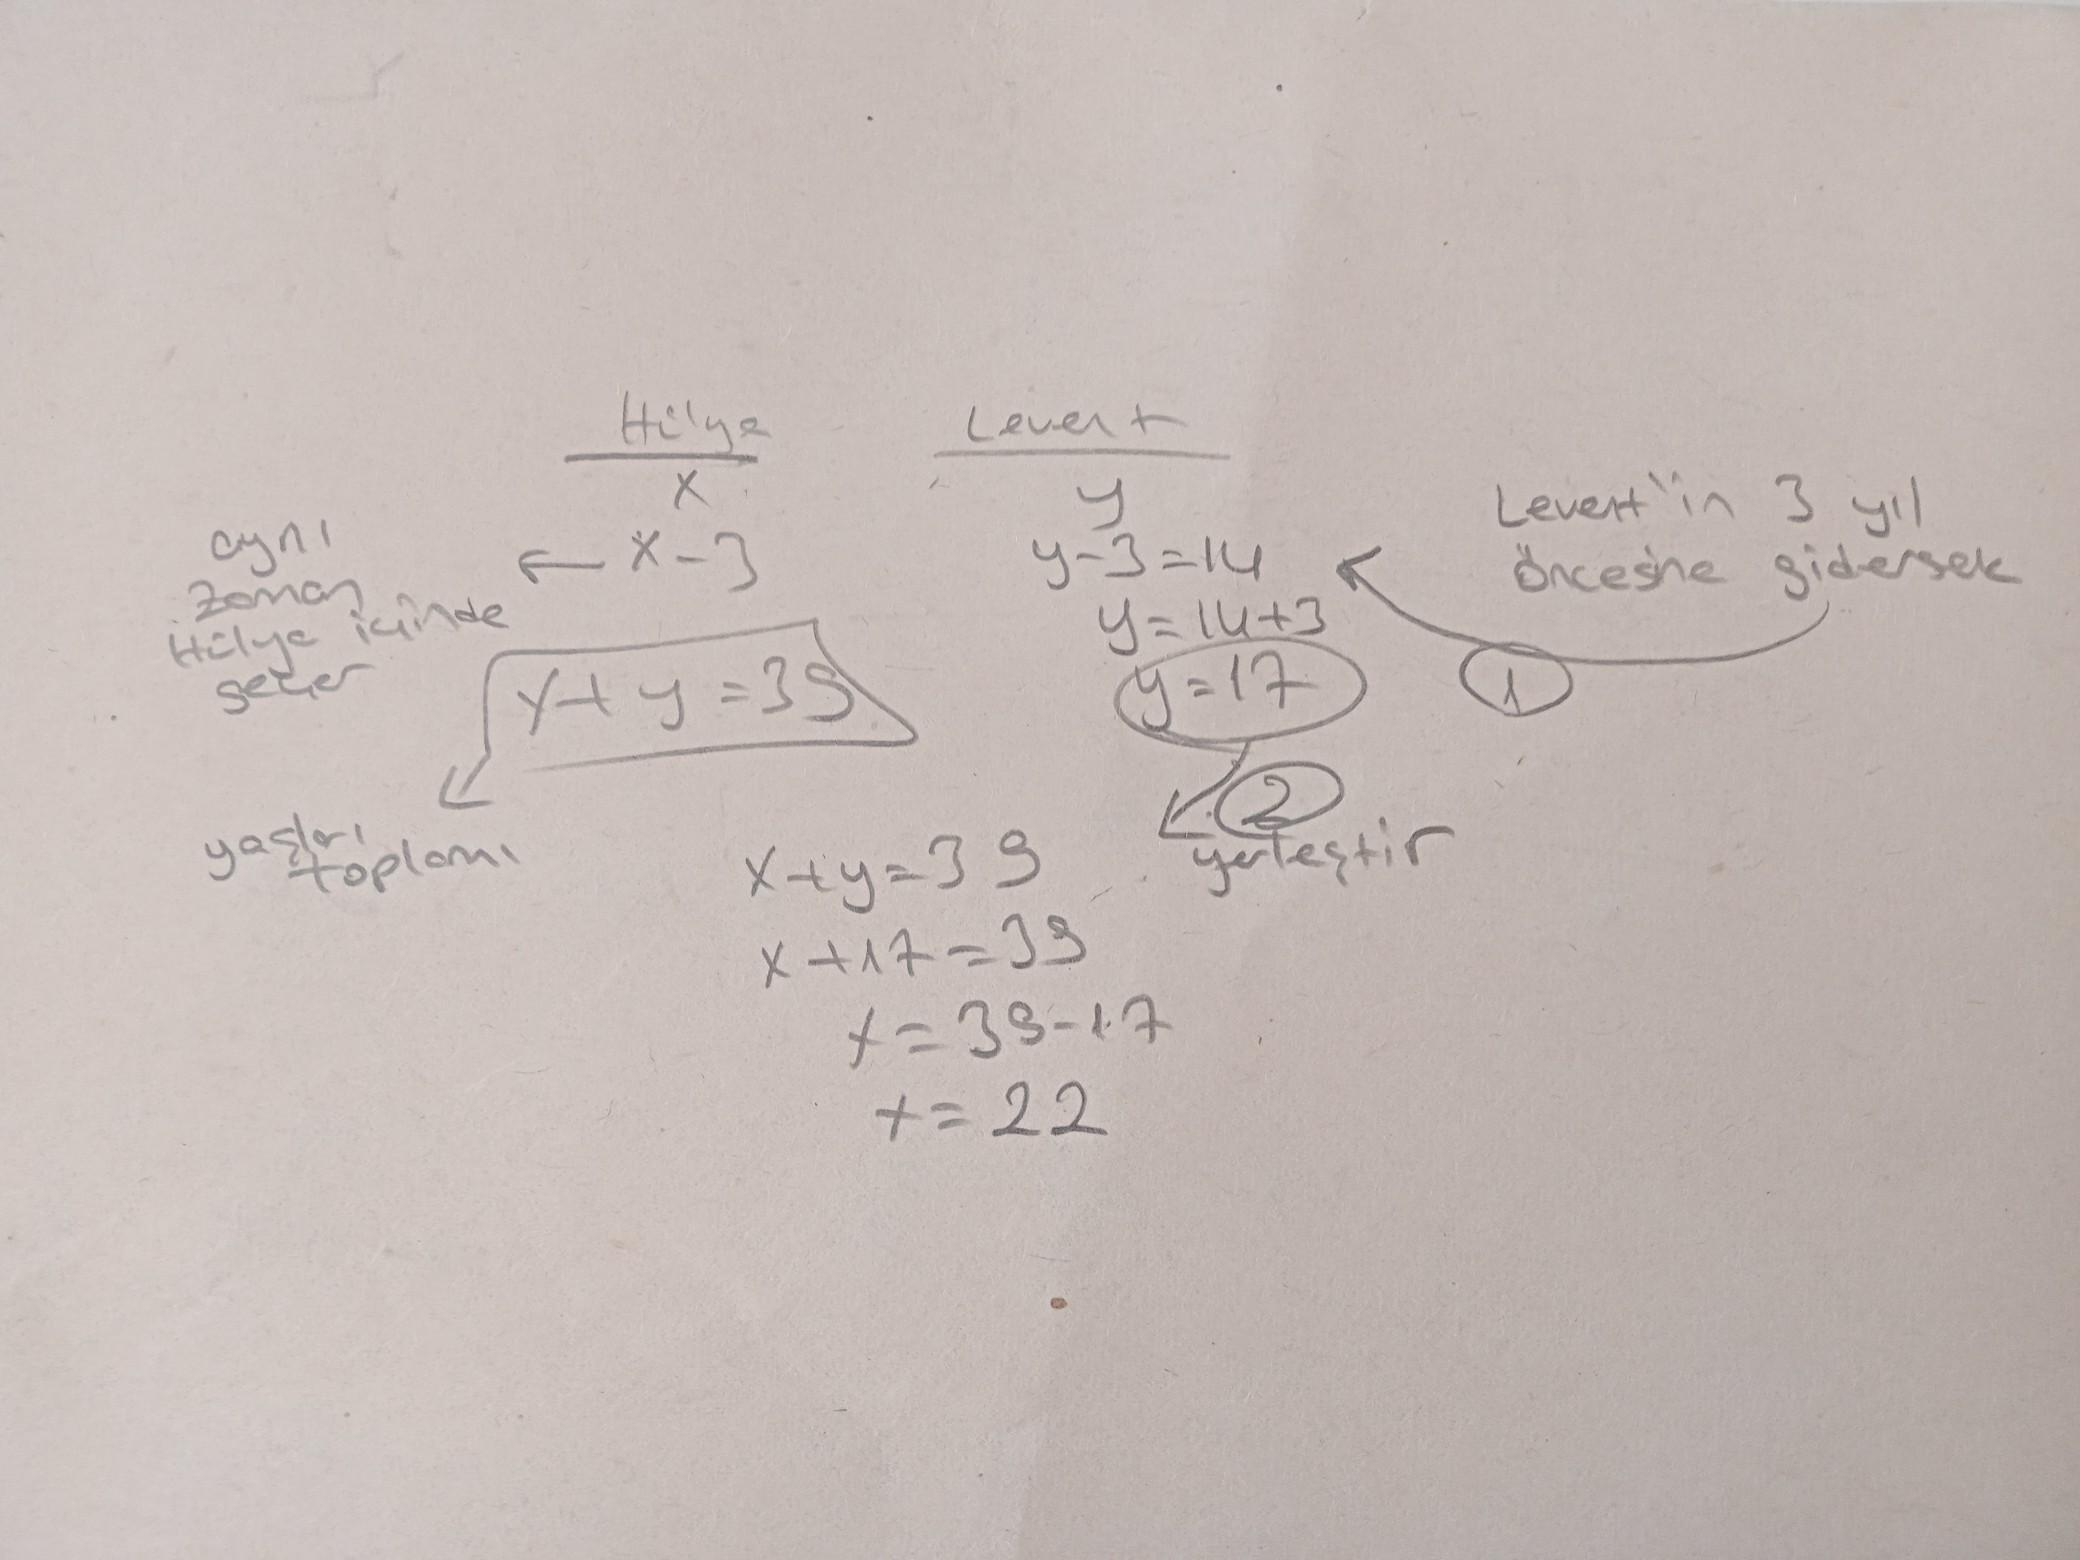 Hülya Levent
x y
x-3 y-3=14
y=14+3
y=17
aynı
zaman
Hülya içinde
geçer
Levent'in 3 yıl
öncesine gidersek
1
x+y=39
yaşları
toplamı
2
yerleştir
x+y=39
x+17=39
x=39-17
x=22